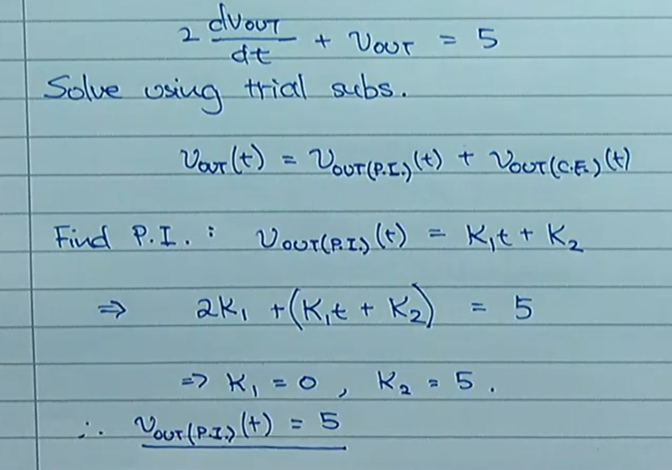 2 dVout/dt + Vout = 5
Solve using trial subs.
Vout(t) = Vout(P.I.)(t) + Vout(C.F.)(t)
Find P.I. : Vout(P.I.)(t) = K₁t + K₂
⇒ 2K₁ + (K₁t + K₂) = 5
⇒ K₁ = 0 , K₂ = 5 .
∴ Vout(P.I.)(t) = 5